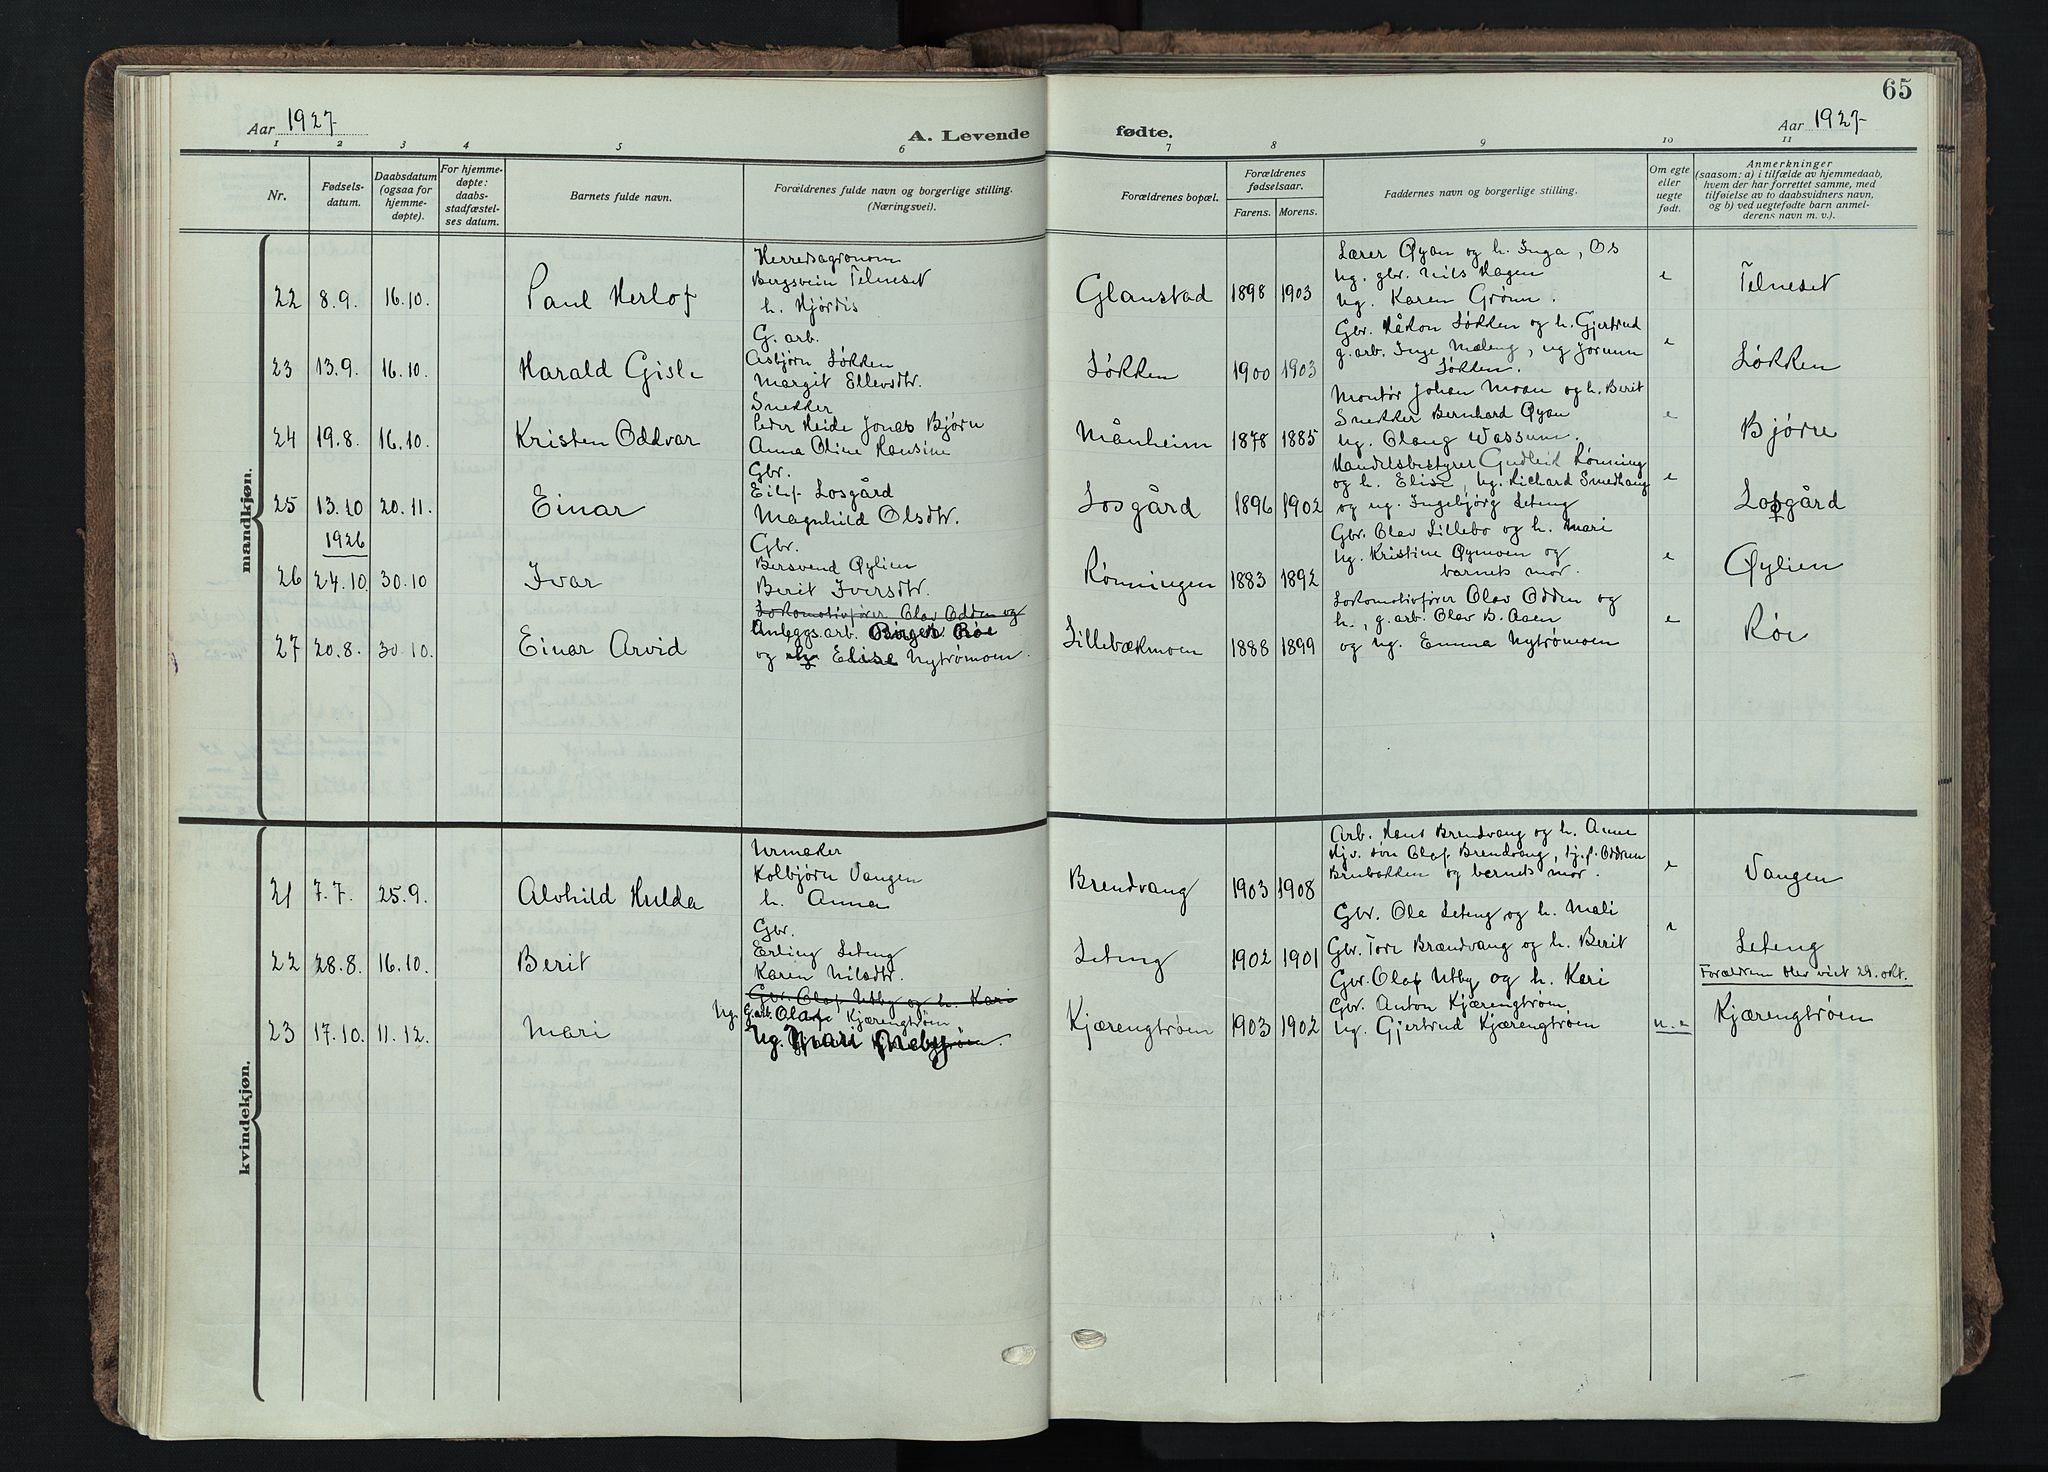 65
Aar 1927
A. Levende fødte.
Aar 1927
1 2 3 4 5 6 7 8 9 10 11
Nr.
Fødsels-
datum.
Daabsdatum
(ogsaa for
hjemme-
døpte).
For hjemme-
døpte:
daabs-
stadfæstel-
ses datum.
Barnets fulde navn.
Forældrenes fulde navn og borgerlige stilling.
(Næringsvei).
Forældrenes bopæl.
Forældrenes
fødselsaar.
Farens. Morens.
Faddernes navn og borgerlige stilling.
Om egte
eller
uegte
født.
Anmerkninger
(saasom: a) i tilfælde av hjemmedaab,
hvem der har forrettet samme, med
tilføielse av to daabsvidners navn,
og b) ved uegtefødte barn anmel-
derens navn m. v.).
mandkjøn.
22 8.9. 16.10. Paul Herlof
Herredsagronom
Bergsvein Telneset
h. Hjørdis
Glanstad 1898 1903
Lærer Øyan og h. Inga, Os
Ug. gbr. Nils Hagen
Ug. Karen Grønn.
e Telneset
23 13.9. 16.10. Harald Gisle
G. arb.
Asbjørn Løkken
Margit Ellevsdtr.
Løkken 1900 1903
Gbr. Håkon Løkken og h. Gjertrud
g. arb. Inge Mæleng, ug Jorunn
Løkken.
e Løkken
24 19.8. 16.10. Kristen Oddvar
Snekker
Peder Heide Jonas Bjørn
Anna Oline Hansine
Månheim 1878 1885
Montør Johan Moan og h. Berit
Snekker Bernhard Øyan
Ug. Olaug Wassum.
e Bjørn
25 13.10 20.11. Einar
Gbr.
Eilif Losgård
Magnhild Olsdtr.
Losgård 1896 1902
Handelsbestyrer Gudleik Rønning
og h. Elise, Ug. Richard Smedhaug
og ug. Ingebjørg Leteng
e Losgård
1926
26 24.10. 30.10 Ivar
Gbr.
Bersvend Øylien
Berit Iversdtr.
Rønningen 1883 1892
Gbr. Olav Lillebo og h. Mari
Ug. Kristine Øymoen og
barnets mor.
e Øylien
27 20.8. 30.10. Einar Arvid
Lokomotivfører Olav Odden og
Anleggsarb. Birger Røe
og Elise Nytrømoen.
Lillebækmoen 1888 1899
Lokomotivfører Olav Odden og
h., g. arb. Olav B. Aaen
og ug. Emma Nytrømoen
e Røe
kvindekjøn.
21 7.7. 25.9. Alvhild Hulda
Urmaker
Kolbjørn Vangen
h. Anna
Brendvang 1903 1908
Arb. Hans Brendvang og h. Anne
Hjv. søn Olaf Brendvang, tj.p. Oddrun
Brubakken og barnets mor.
e Vangen
22 28.8. 16.10. Berit
Gbr.
Erling Leteng
Karen Nilsdtr.
Leteng 1902 1901
Gbr. Ole Leteng og h. Mali
Gbr. Tore Brændvang og h. Berit
Leteng
Forældrene blev viet 29. okt.
23 17.10. 11.12. Mari
Gbr. Olaf Utby og h. Kari
Ug. g.arb. Olaf Kjærengtrøen
Ug. Mari Meby
Kjærengtrøen 1903 1902
Gbr. Olaf Utby og h. Kari
Gbr. Anton Kjærengtrøen
Ug. Gjertrud Kjærengtrøen
u. e Kjærengtrøen